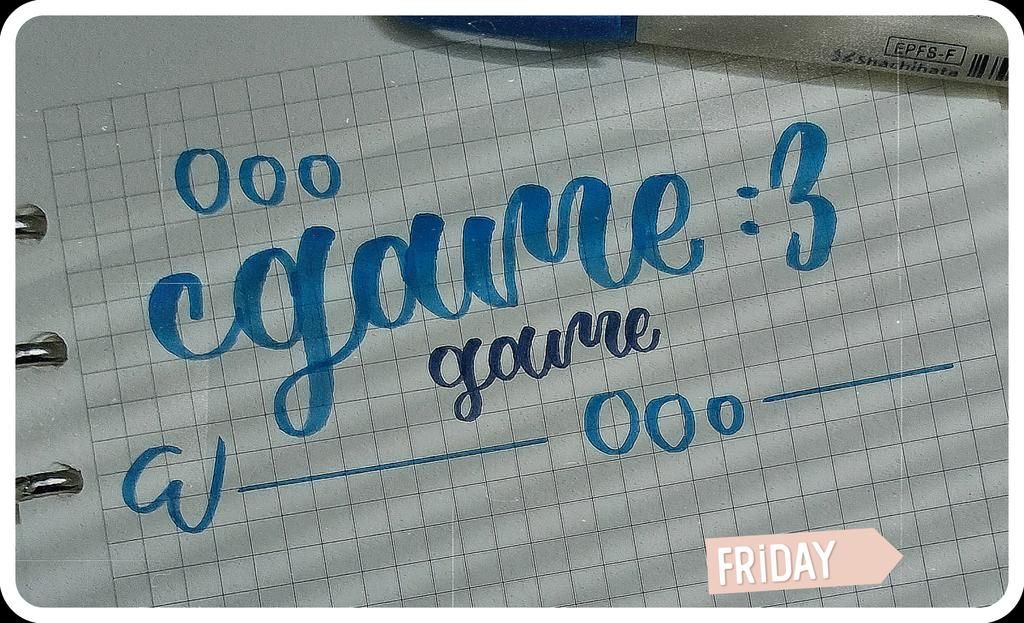 EPFS-F
Shachihata
Ooo
cgame :3
game
Ooo
FRiDAY